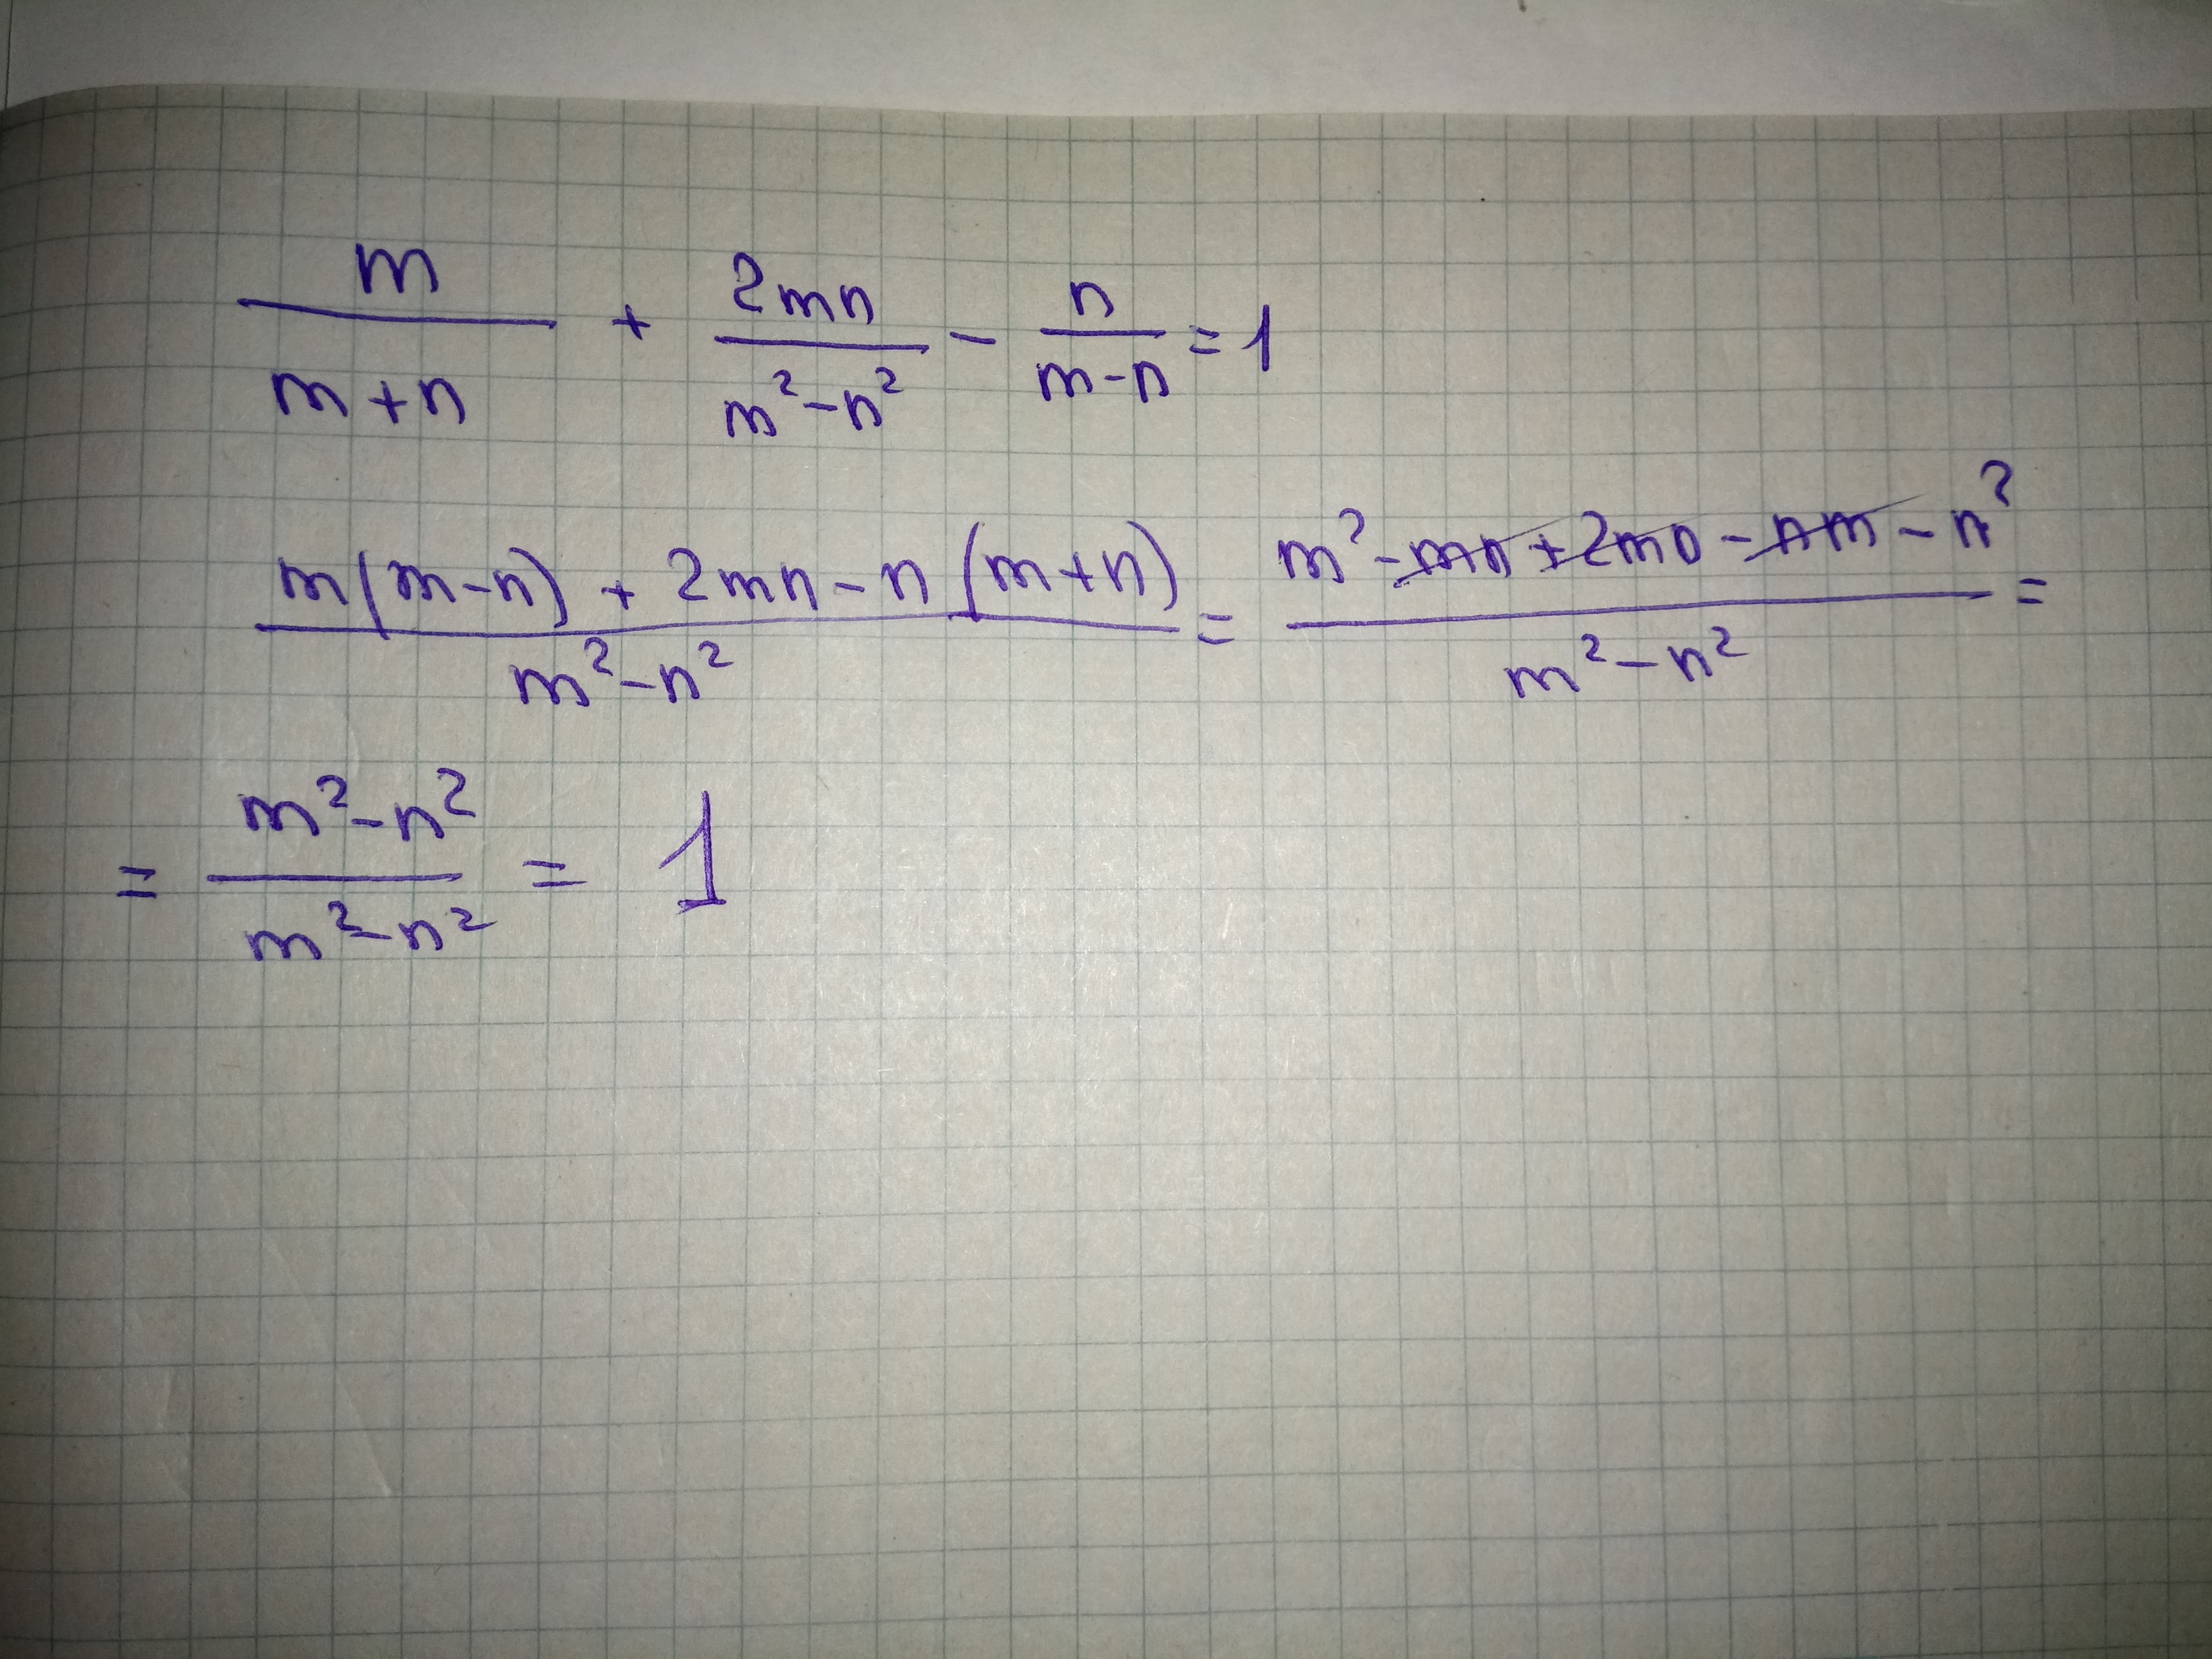 m/(m+n) + 2mn/(m²-n²) - n/(m-n) = 1
(m(m-n) + 2mn - n(m+n))/(m²-n²) = (m² - mn + 2mn - nm - n²)/(m²-n²) =
= (m²-n²)/(m²-n²) = 1